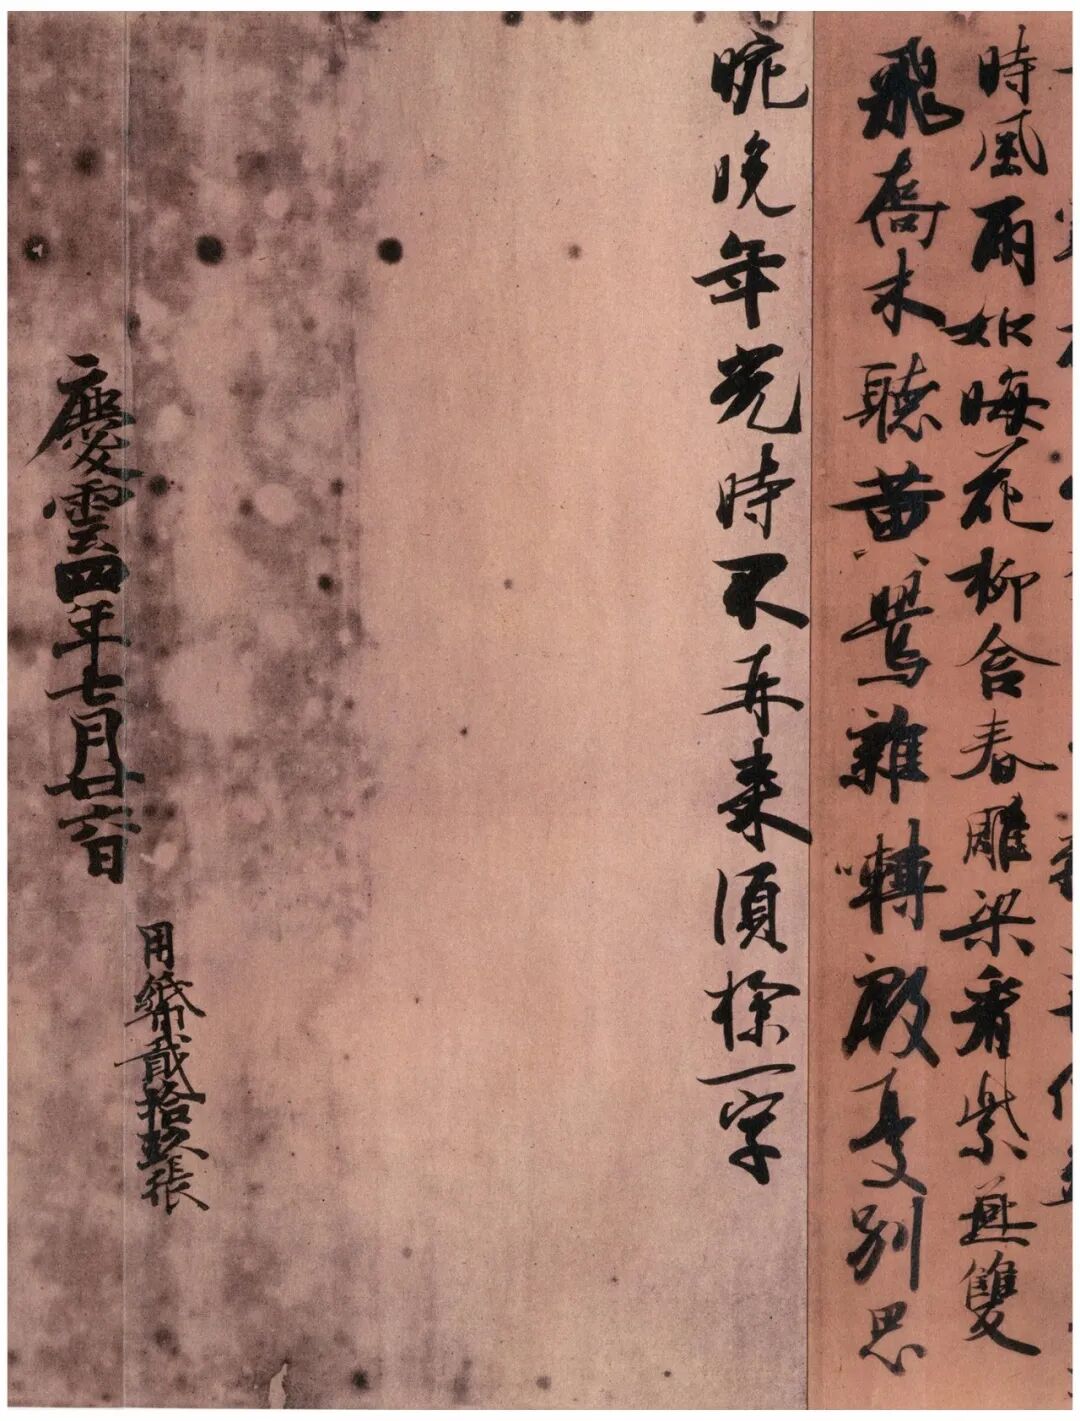 時風雨如晦花柳含春雕梁看紫燕雙
飛喬木聽黃鶯雜囀殷憂別思
晼晚年光時不再来須探一字
用紙貳拾玖張
慶雲四年七月廿六日